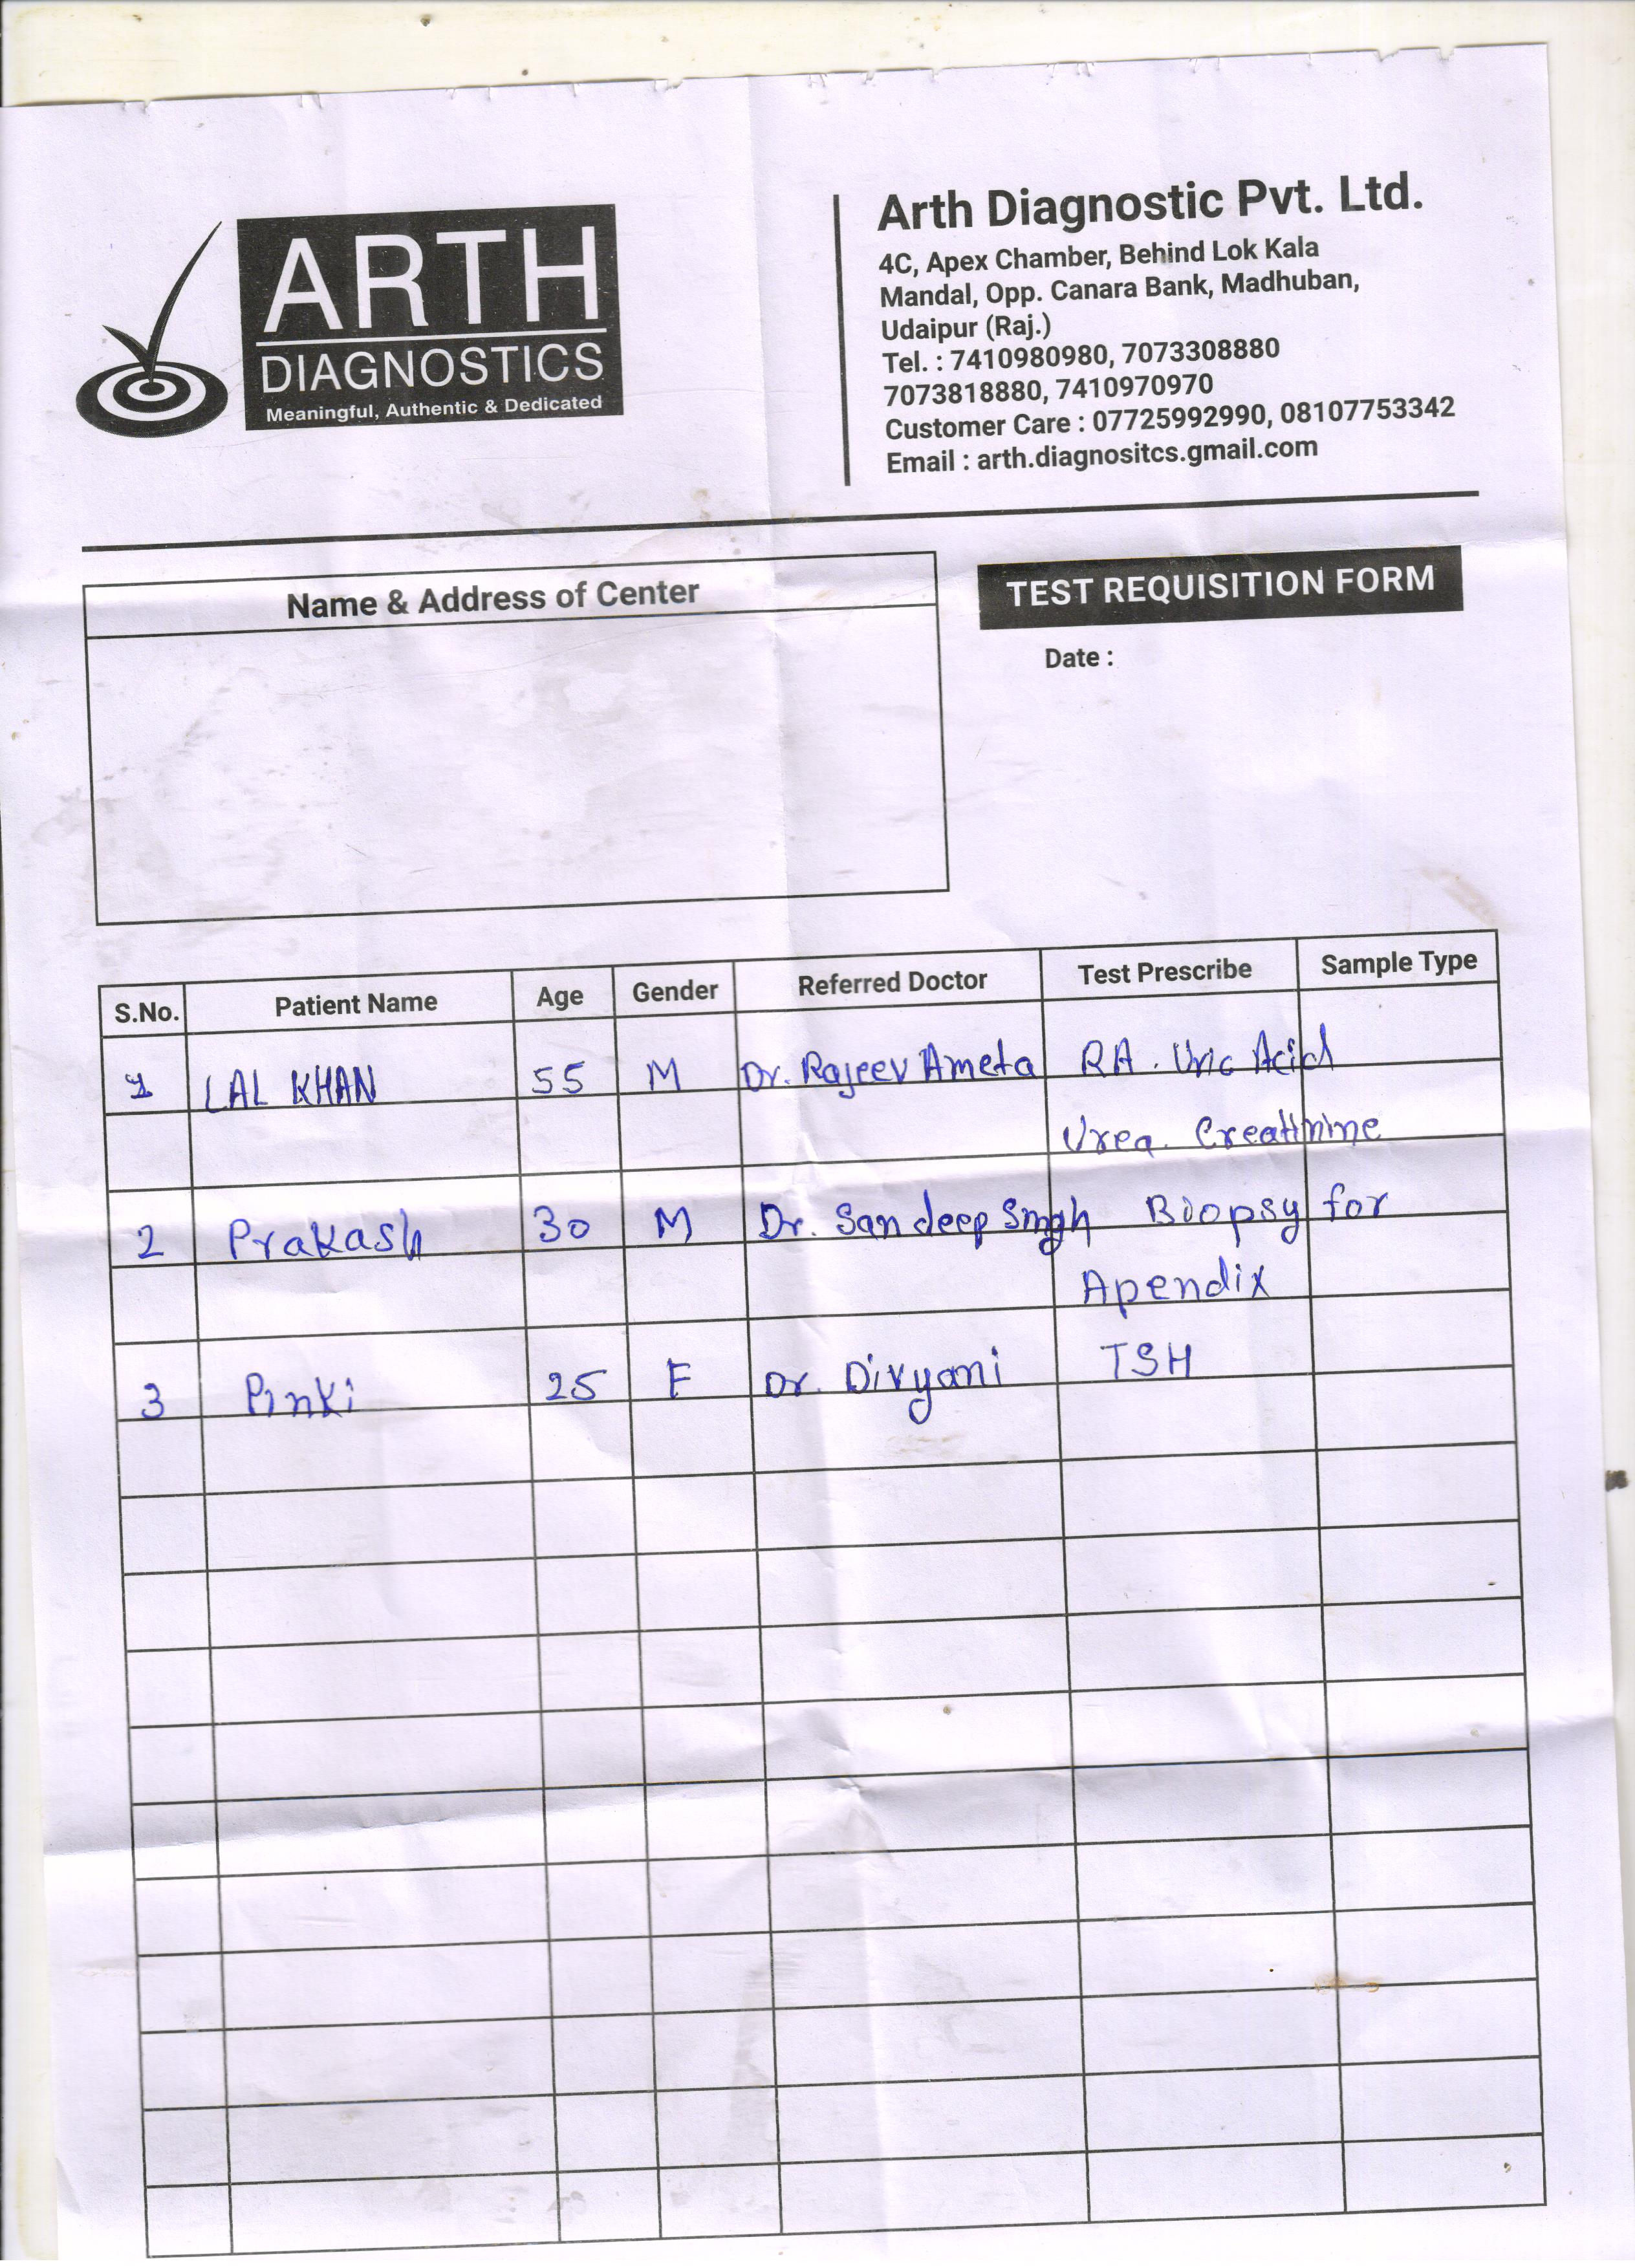 ARTH
DIAGNOSTICS
Meaningful, Authentic & Dedicated
Arth Diagnostic Pvt. Ltd.
4C, Apex Chamber, Behind Lok Kala
Mandal, Opp. Canara Bank, Madhuban,
Udaipur (Raj.)
Tel. : 7410980980, 7073308880
7073818880, 7410970970
Customer Care : 07725992990, 08107753342
Email : arth.diagnositcs.gmail.com
Name & Address of Center
TEST REQUISITION FORM
Date :
S.No. Patient Name Age Gender Referred Doctor Test Prescribe Sample Type
1 LAL KHAN 55 M Dr. Rajeev Ameta RA. Uric Acid
Urea. Creatinine
2 Prakash 30 M Dr. Sandeep Singh Biopsy for
Apendix
3 Pinki 25 F Dr. Divyani TSH